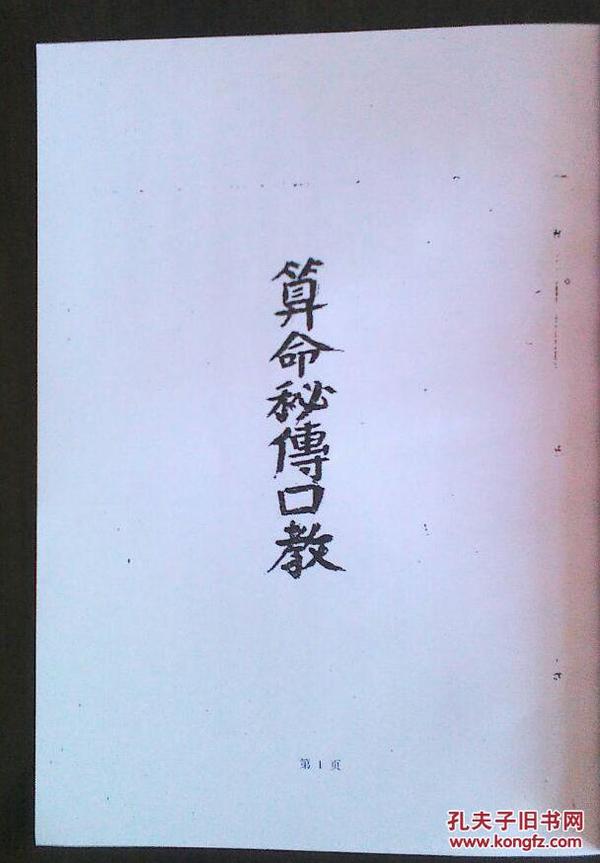 算命秘傳口教
第 1 页
孔夫子旧书网
www.kongfz.com